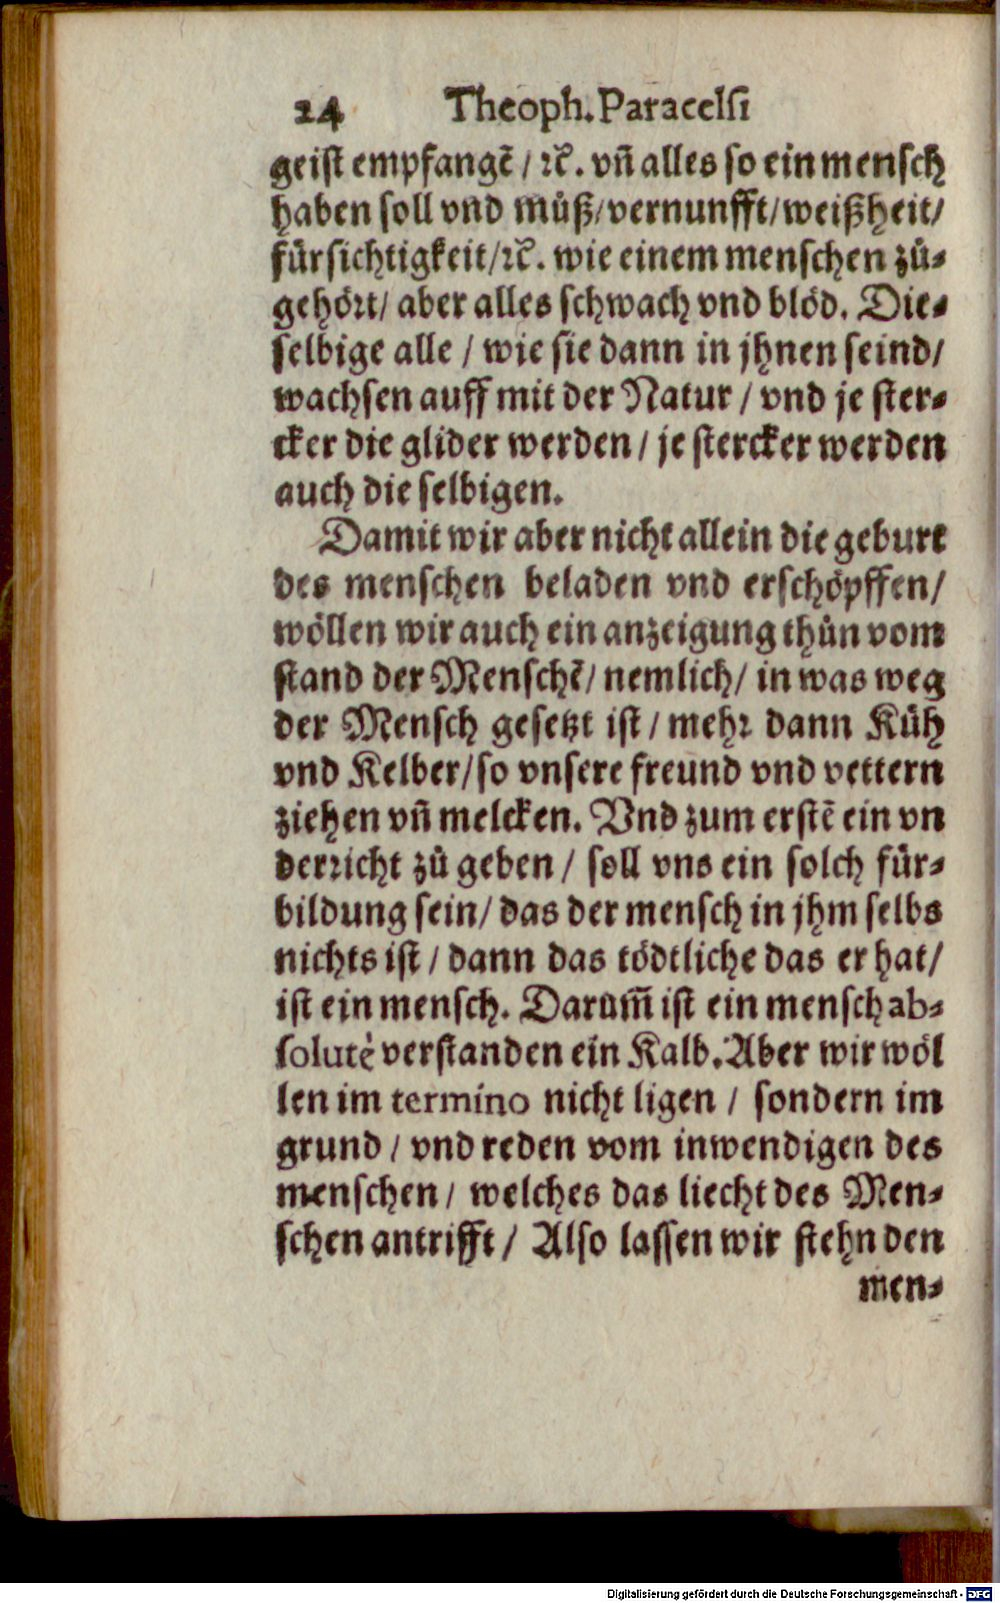 24 Theoph. Paracelsi
geist empfangē / ꝛc̄. vn̄ alles so ein mensch
haben soll vnd můß / vernunfft / weißheit /
fürsichtigkeit / ꝛc̄. wie einem menschen zů-
gehört / aber alles schwach vnd blöd. Die-
selbige alle / wie sie dann in jhnen seind /
wachsen auff mit der Natur / vnd je ster-
cker die glider werden / je stercker werden
auch die selbigen.
Damit wir aber nicht allein die geburt
des menschen beladen vnd erschöpffen /
wöllen wir auch ein anzeigung thůn vom
stand der Menschē / nemlich / in was weg
der Mensch gesetzt ist / mehr dann Küh
vnd Kelber / so vnsere freund vnd vettern
ziehen vn̄ melcken. Vnd zum erstē ein vn
derricht zů geben / soll vns ein solch für-
bildung sein / das der mensch in jhm selbs
nichts ist / dann das tödtliche das er hat /
ist ein mensch. Darum̄ ist ein mensch ab-
solutè verstanden ein Kalb. Aber wir wöl
len im termino nicht ligen / sondern im
grund / vnd reden vom inwendigen des
menschen / welches das liecht des Men-
schen antrifft / Also lassen wir stehn den
men-
Digitalisierung gefördert durch die Deutsche Forschungsgemeinschaft - DFG